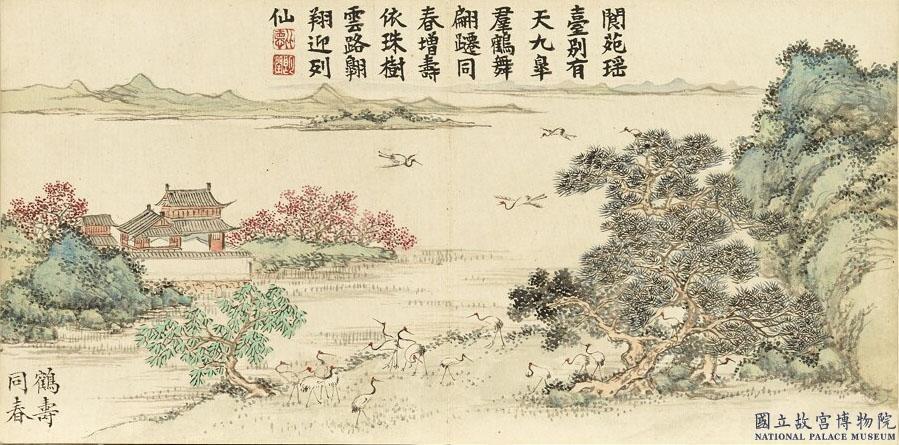 閬苑瑶
臺别有
天九皐
羣鶴舞
翩躚同
春增壽
依珠樹
雲路翺
翔迎列
仙
鶴壽
同春
國立故宮博物院
NATIONAL PALACE MUSEUM